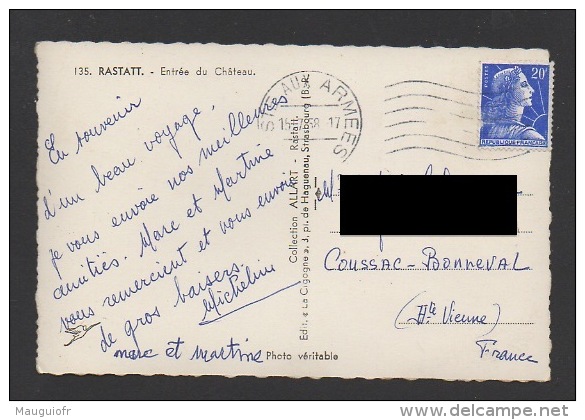 135. RASTATT. - Entrée du Château.
En souvenir
d'un beau voyage,
je vous envoie nos meilleures
amitiés. Marc et Martine
vous remercient et vous envoie
de gros baisers.
Micheline
marc et martine
Photo véritable
Collection ALLART - Rastatt.
Edit. « La Cigogne », J, pl. de Haguenau, Strasbourg (B.-R.
AUX ARMEES
POSTES
20F
REPUBLIQUE FRANÇAISE
M
COUSSAC-BONNEVAL
(Hte Vienne)
France
Mauguiofr
delcampe.net